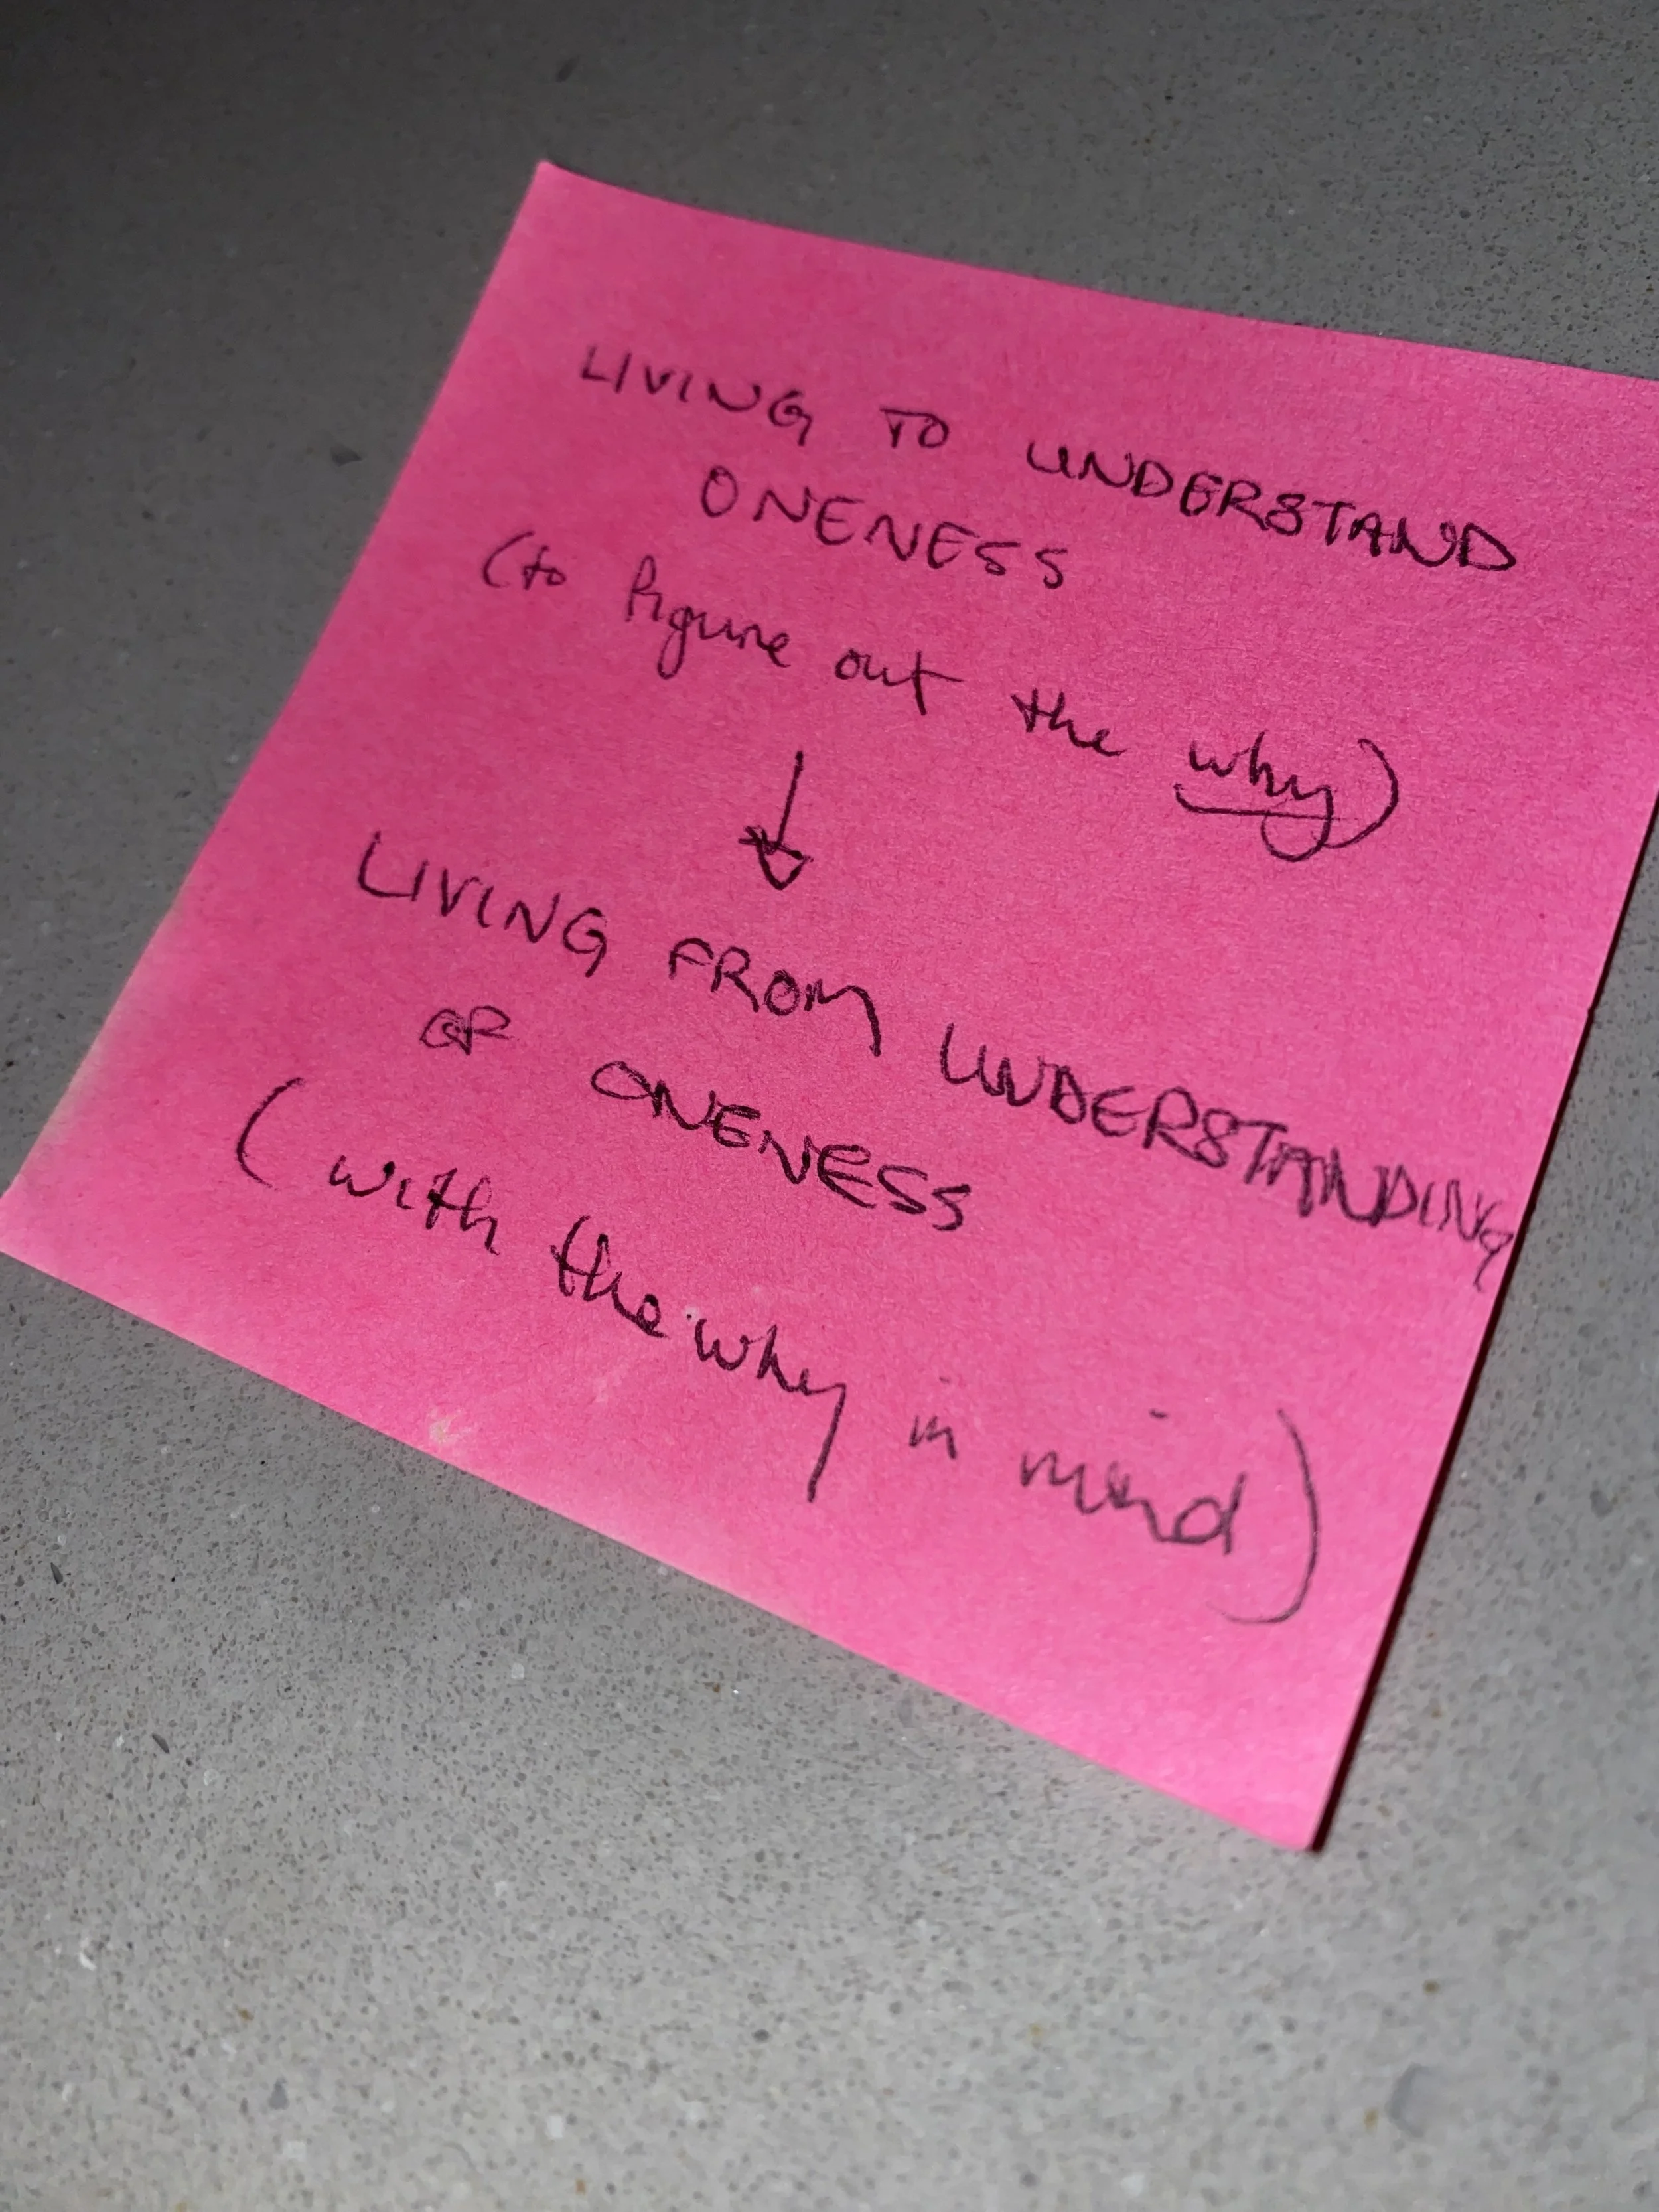 LIVING TO UNDERSTAND
ONENESS
(to figure out the why)
↓
LIVING FROM UNDERSTANDING
OF ONENESS
(with the why in mind)